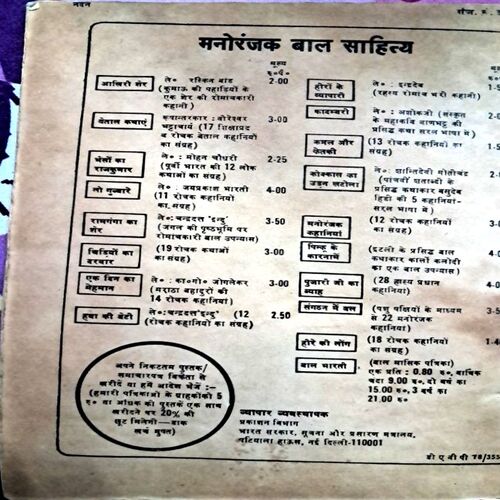 मनोरंजक बाल साहित्य
मूल्य
रु०पै०
आखिरी शेर
ले० रस्किन बांड
2-00
(कुमाऊं की पहाड़ियों के
एक शेर की रोमांचकारी
कहानी)
बेताल कथाएं
रूपान्तरकार : वीरेश्वर
3-00
भट्टाचार्य (17 शिक्षाप्रद
व रोचक बेताल कहानियों
का संग्रह)
भैंसों का
राजकुमार
ले० : मोहन चौधरी
2-25
(पूर्वी भारत की 12 लोक
कथाओं का संग्रह)
लो गुब्बारे
ले० : जयप्रकाश भारती
4-00
(11 रोचक कहानियों
का संग्रह)
रामगंगा का
शेर
ले०:चन्द्रदत्त 'इन्दु'
3-50
(जंगल की पृष्ठभूमि पर
रोमांचकारी बाल उपन्यास)
चिड़ियों का
दरबार
(19 रोचक कथाओं
3-00
का संग्रह)
एक दिन का
मेहमान
ले० : का०गो० जोगलेकर
3-00
(मराठा बहादुरों की
14 रोचक कहानियां)
हवा की बेटी
ले०:चन्द्रदत्त'इन्दु' (12
2.50
रोचक कहानियों का संग्रह)
अपने निकटतम पुस्तक/
समाचारपत्र विक्रेता से
खरीदें या हमें आदेश भेजें :—
(हमारी पत्रिकाओं के ग्राहकोंको 5
रु० या अधिक की पुस्तकें एक साथ
खरीदने पर 20% की
छूट मिलेगी—डाक
खर्च मुफ्त)
हीरों के
व्यापारी
ले० : इन्द्रदेव
(रहस्य रोमांच भरी कहानी)
कादम्बरी
ले० : अशोकजी (संस्कृत
के महाकवि बाणभट्ट की
प्रसिद्ध कथा सरल भाषा में)
कमल और
केतकी
(13 रोचक कहानियों
का संग्रह)
कोक्कास का
उड़न खटोला
ले०: शान्तिदेवी मोतीचन्द्र
(पांचवीं शताब्दी के
प्रसिद्ध कथाकार वसुदेव
हिंडी की 5 कहानियां-
सरल भाषा में)
मनोरंजक
कहानियां
(12 रोचक कहानियों
का संग्रह)
पिनकू के
कारनामे
(इटली के प्रसिद्ध बाल
कथाकार कार्लो कलोदी
का एक बाल उपन्यास)
पुजारी जी का
ब्याह
(28 हास्य प्रधान
कहानियां)
संगठन में बल
(पशु पक्षियों के माध्यम
से 22 मनोरंजक
कहानियां)
हीरे की लौंग
(18 रोचक कहानियों
का संग्रह)
बाल भारती
(बाल मासिक पत्रिका)
एक प्रति : 0.80 रु०, वार्षिक
चंदा 9.00 रु०, दो वर्ष का
15.00 रु०, 3 वर्ष का
21.00 रु०
व्यापार व्यवस्थापक
प्रकाशन विभाग
भारत सरकार, सूचना और प्रसारण मंत्रालय,
पटियाला हाऊस, नई दिल्ली-110001
डी ए वी पी 78/355